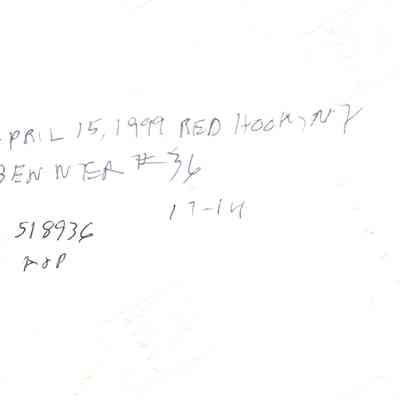 APRIL 15, 1999 RED HOOK, NY
BENNTER #36
17-14
518936